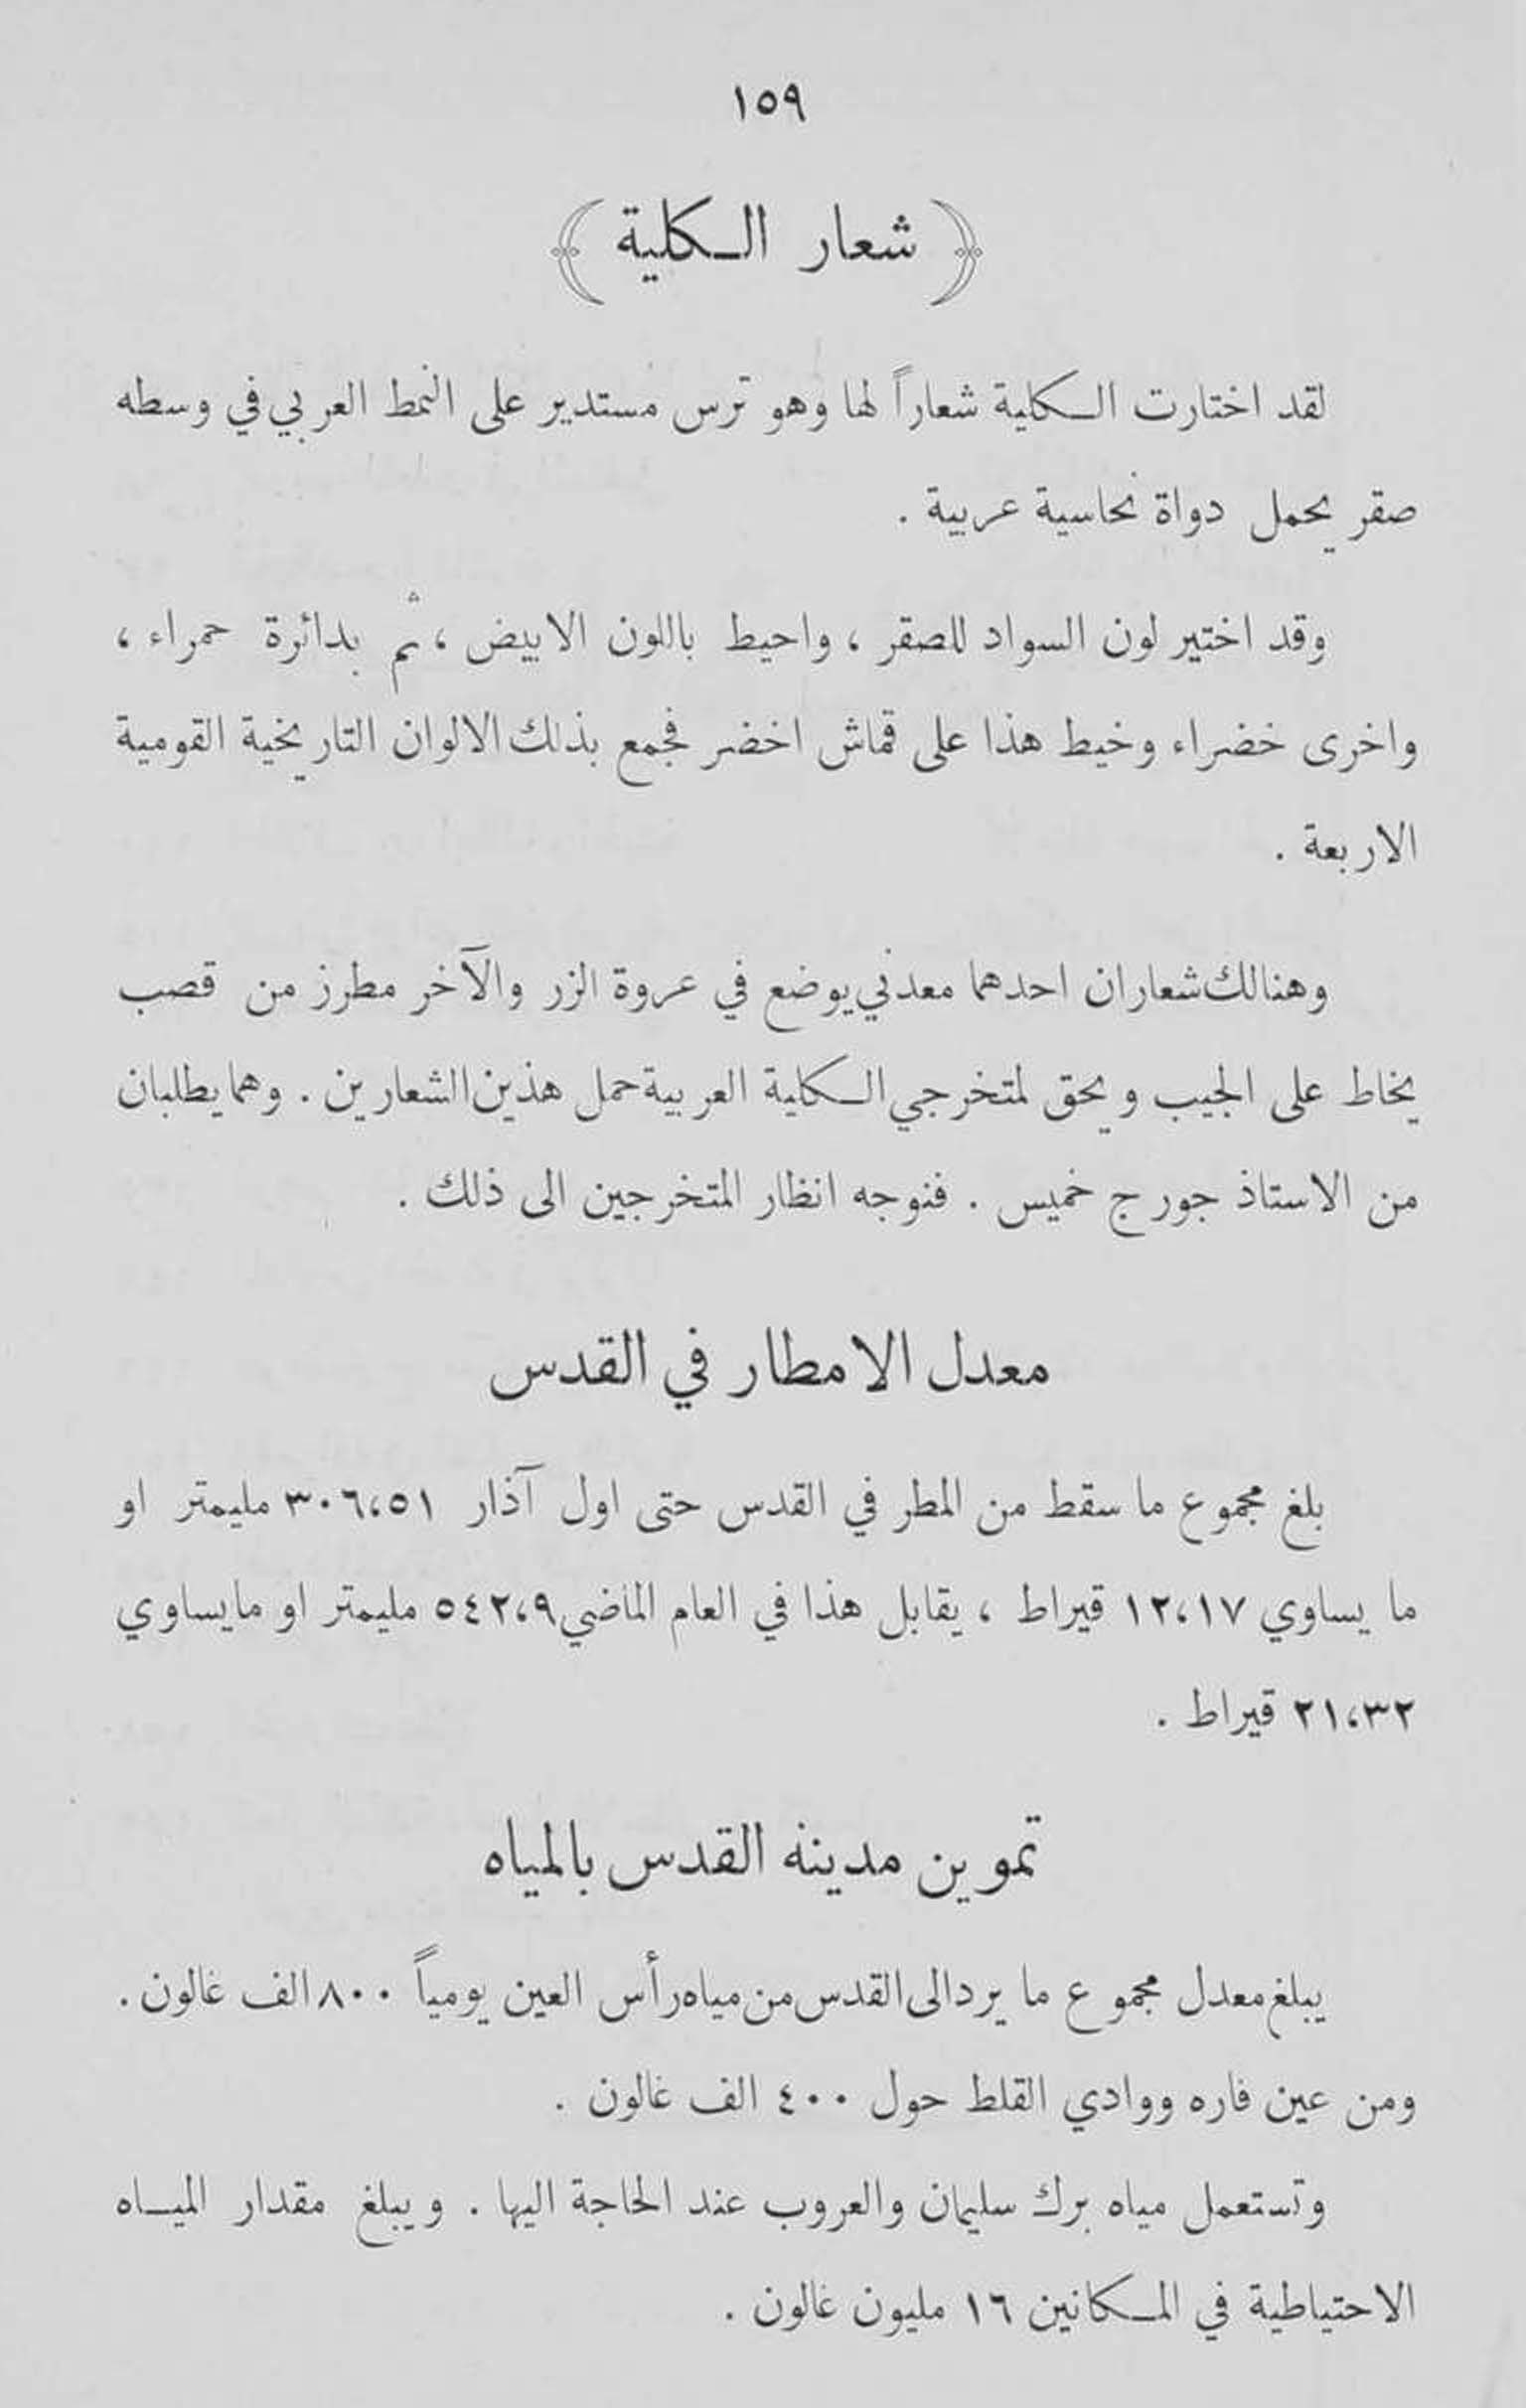 ١٥٩
﴿ شعار الكلية ﴾
لقد اختارت الكلية شعاراً لها وهو ترس مستدير على النمط العربي في وسطه
صقر يحمل دواة نحاسية عربية .
وقد اختير لون السواد للصقر ، واحيط باللون الابيض ، ثم بدائرة حمراء ،
واخرى خضراء وخيط هذا على قماش اخضر فجمع بذلك الالوان التاريخية القومية
الاربعة .
وهنالك شعاران احدهما معدني يوضع في عروة الزر والآخر مطرز من قصب
يخاط على الجيب ويحق لمتخرجي الكلية العربية حمل هذين الشعارين . وهما يطلبان
من الاستاذ جورج خميس . فنوجه انظار المتخرجين الى ذلك .
معدل الامطار في القدس
بلغ مجموع ما سقط من المطر في القدس حتى اول آذار ٣٠٦،٥١ مليمتر او
ما يساوي ١٢،١٧ قيراط ، يقابل هذا في العام الماضي ٥٤٢،٩ مليمتر او ما يساوي
٢١،٣٢ قيراط .
تموين مدينه القدس بالمياه
يبلغ معدل مجموع ما يرد الى القدس من مياه رأس العين يومياً ٨٠٠ الف غالون .
ومن عين فاره ووادي القلط حول ٤٠٠ الف غالون .
وتستعمل مياه برك سليمان والعروب عند الحاجة اليها . ويبلغ مقدار الميـاه
الاحتياطية في المكانين ١٦ مليون غالون .